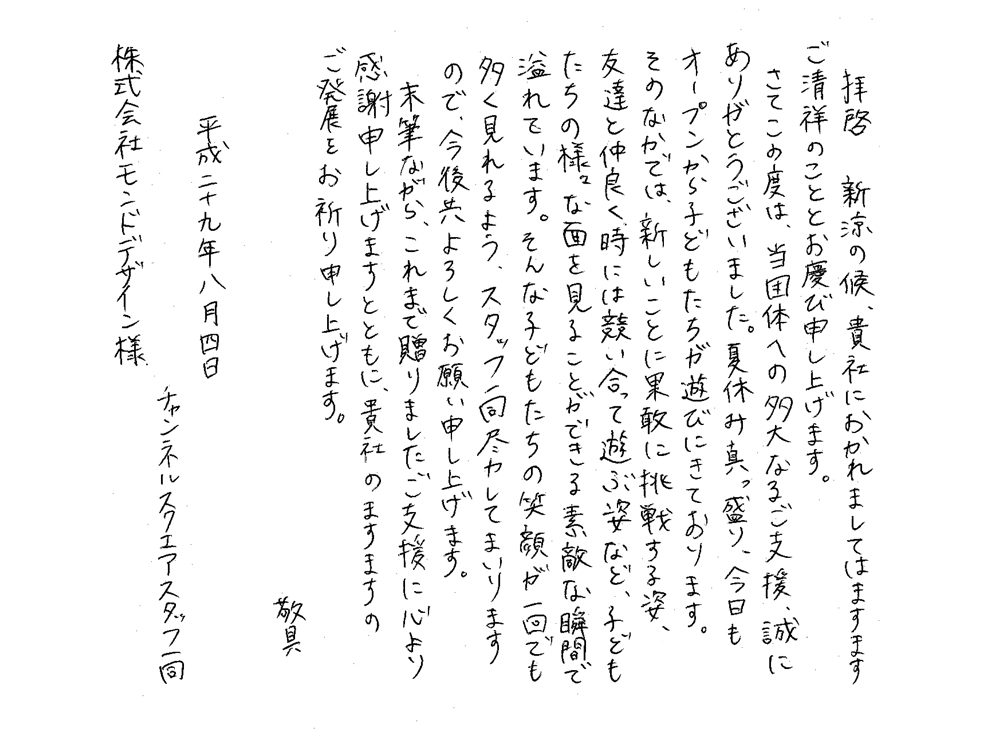 拝啓　新涼の候、貴社におかれましてはますます
ご清祥のこととお慶び申し上げます。
さてこの度は、当団体への多大なるご支援、誠に
ありがとうございました。夏休み真っ盛り、今日も
オープンから子どもたちが遊びにきております。
そのなかでは、新しいことに果敢に挑戦する姿、
友達と仲良く、時には競い合って遊ぶ姿など、子ども
たちの様々な面を見ることができる素敵な瞬間で
溢れています。そんな子どもたちの笑顔が一回でも
多く見れるよう、スタッフ一同尽力してまいります
ので、今後共よろしくお願い申し上げます。
末筆ながら、これまで贈りましたご支援に心より
感謝申し上げますとともに、貴社のますますの
ご発展をお祈り申し上げます。
敬具
平成二十九年八月四日
チャンネルスクエアスタッフ一同
株式会社モンドデザイン様